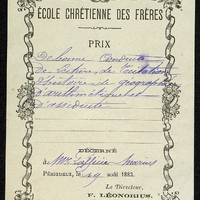 ÉCOLE CHRÉTIENNE DES FRÈRES
PRIX
De bonne Conduite
De Lecture, de Récitation
d'histoire de géographie
d'arithmétique et
d'assiduité
DÉCERNÉ
à Mr Marius
Pélissanne, le 19 août 1883.
Le Directeur,
F. LÉONORIUS.